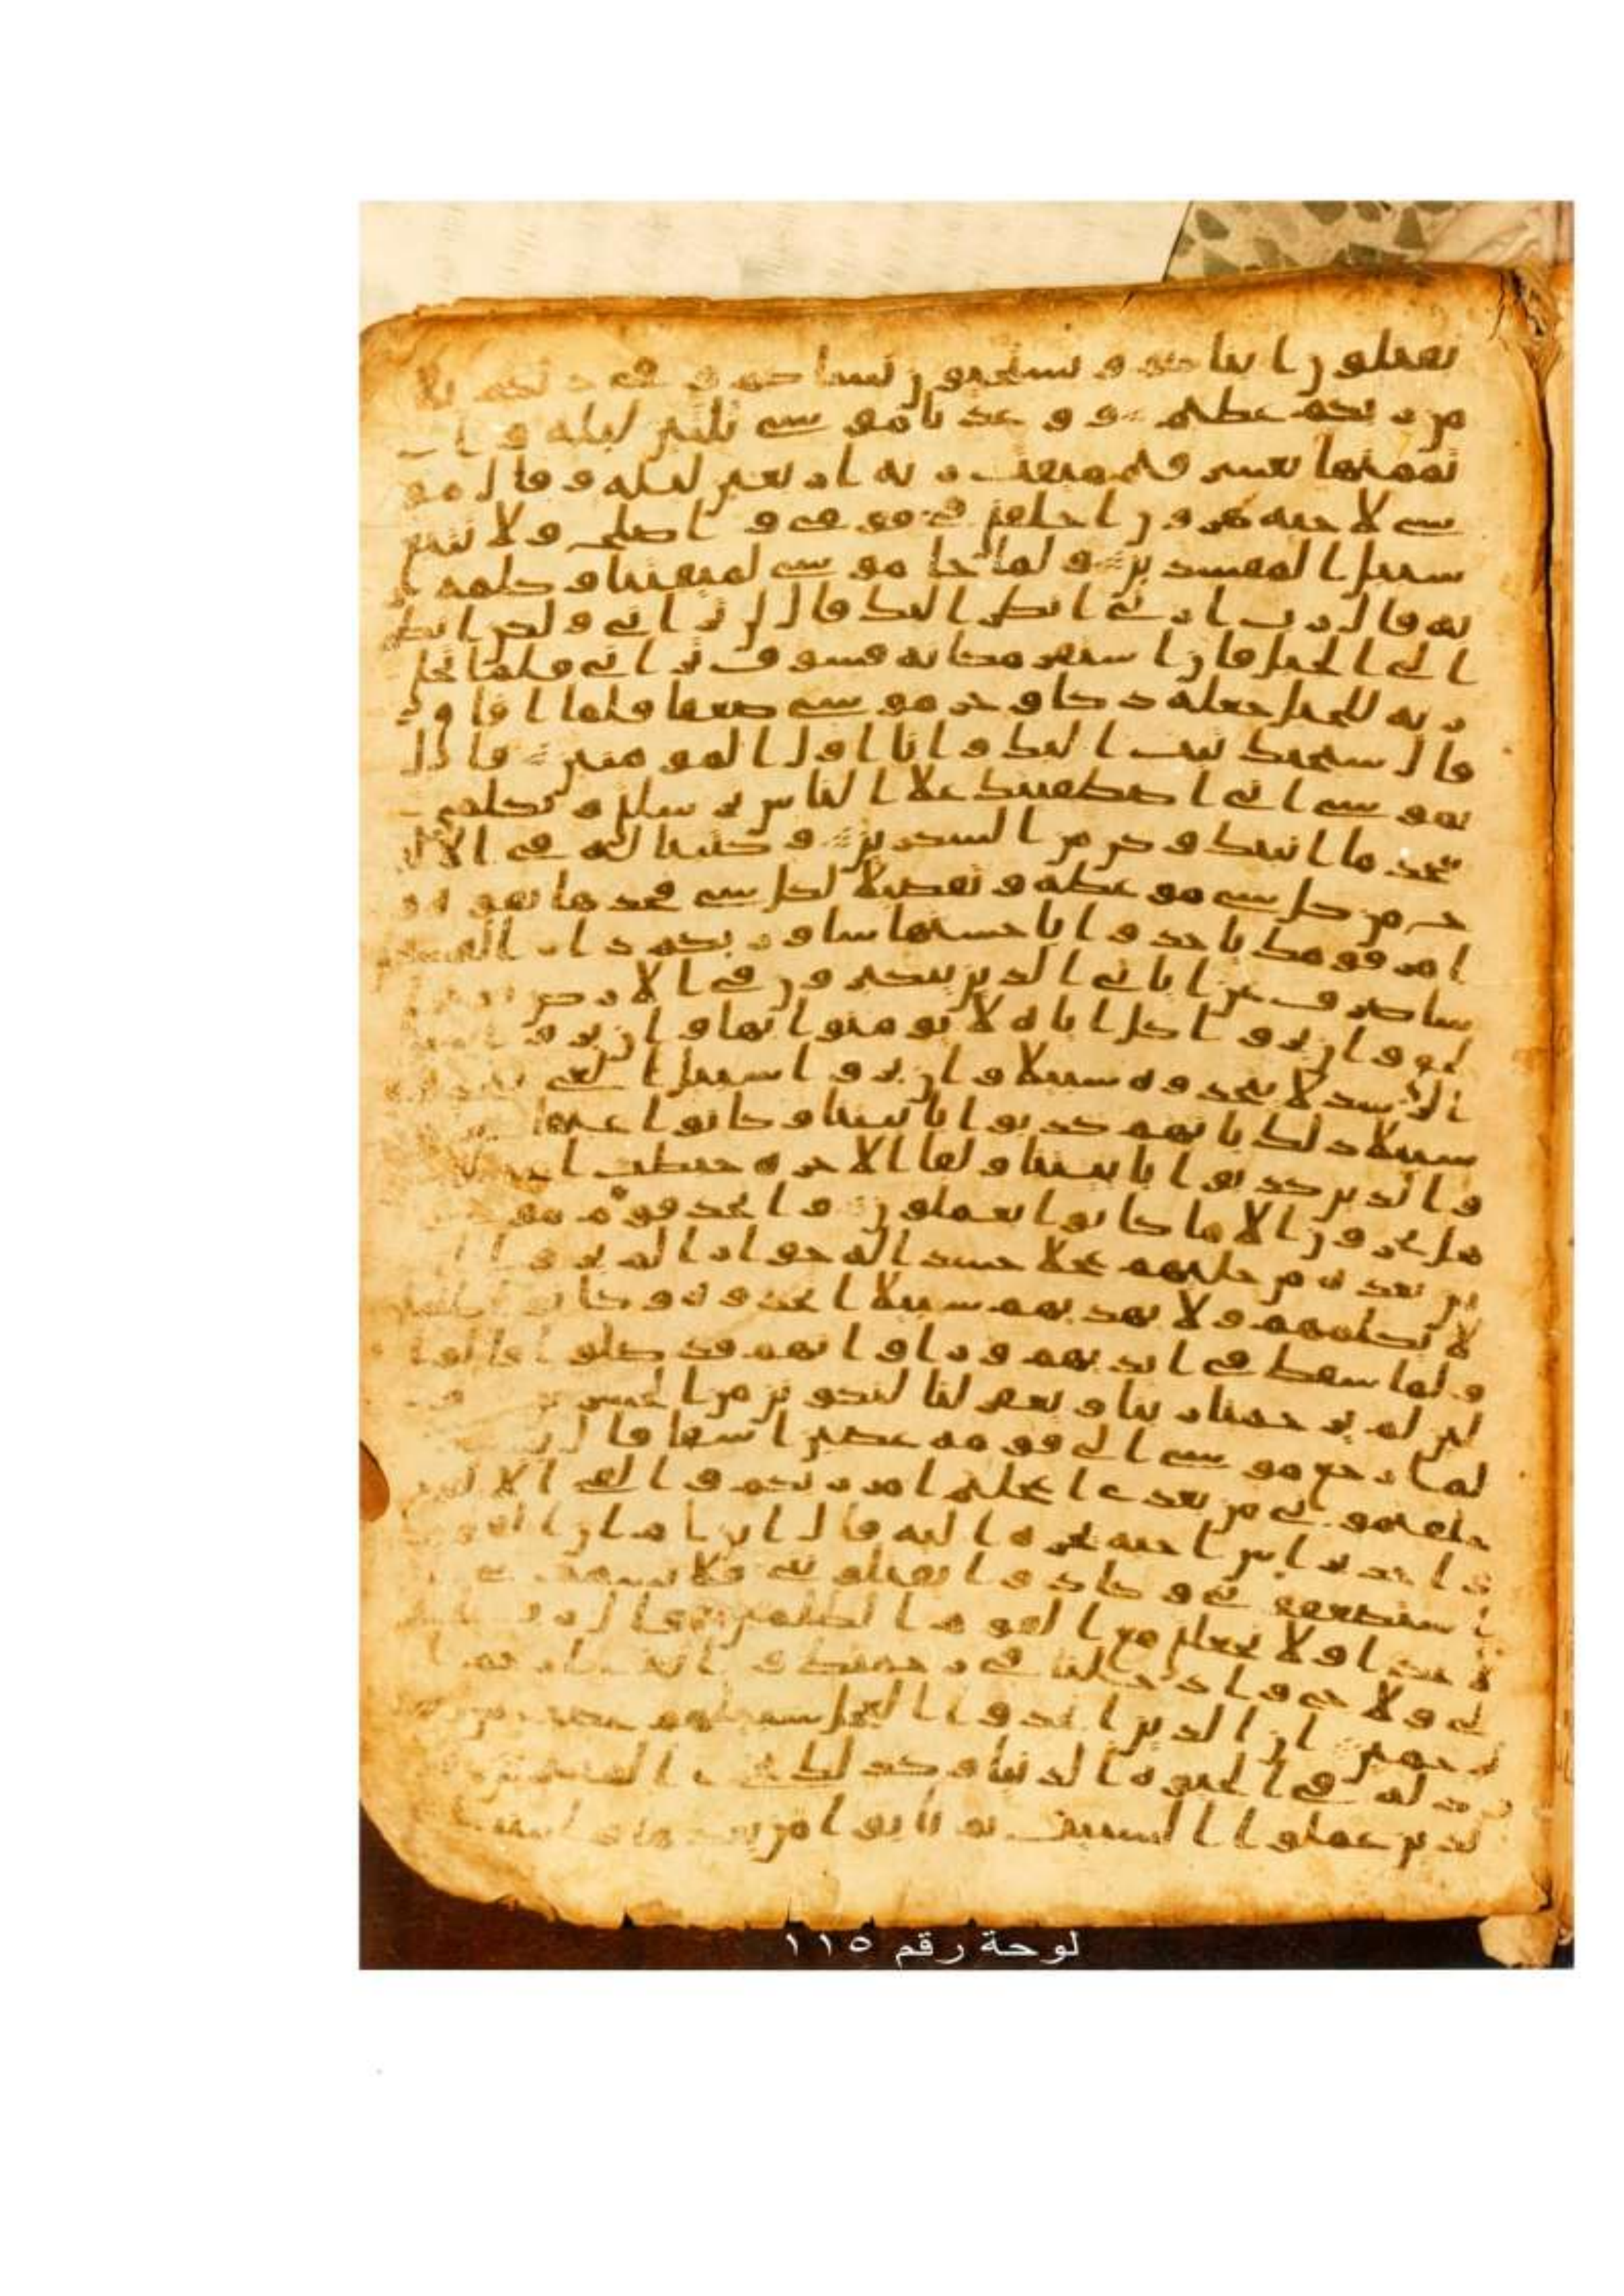 يقتلون ابناكم ويستحيون نساكم وفي ذلكم بلا
من ربكم عظيم ووعدنا موسى ثلثين ليله وا
تممنها بعشر فتم ميقت ربه اربعين ليله وقال مو
سى لاخيه هرون اخلفني في قومي واصلح ولا تتبع
سبيل المفسدين ولما جا موسى لميقتنا وكلمه ر
به قال رب ارني انظر اليك قال لن تراني ولكن انظر
الى الجبل فان استقر مكانه فسوف تراني فلما تجلى
ربه للجبل جعله دكا وخر موسى صعقا فلما افاق
قال سبحنك تبت اليك وانا اول المومنين قال
يموسى اني اصطفيتك علا الناس برسلتي وبكلمي
فخذ ما اتيتك وكن من الشكرين وكتبنا له في الالو
ح من كل شي موعظه وتفصيلا لكل شي فخذها بقوه و
امر قومك ياخذوا باحسنها ساوريكم دار الفسقين
ساصرف عن اياتي الذين يتكبرون في الارض بغير ا
لحق وان يروا كل ايه لا يومنوا بها وان يروا سبيل
الرشد لا يتخذوه سبيلا وان يروا سبيل الغي يتخذوه
سبيلا ذلك بانهم كذبوا باييتنا وكانوا عنها
والذين كذبوا باييتنا ولقا الاخره حبطت اعملهم
هل يجزون الا ما كانوا يعملون واتخذ قوم موسى
من بعده من حليهم عجلا جسدا له خوار الم يروا ا
لا يكلمهم ولا يهديهم سبيلا اتخذوه وكانوا ظلمين
ولما سقط في ايديهم وراوا انهم قد ضلوا قالوا
لين لم يرحمنا ربنا ويغفر لنا لنكونن من الخسرين و
لما رجع موسى الى قومه غضبن اسفا قال
خلفتموني من بعدي اعجلتم امر ربكم والقى الالوح
واخذ براس اخيه يجره اليه قال ابن ام ان القوم
استضعفوني وكادوا يقتلونني فلا تشمت بي
لاعدا ولا تجعلني مع القوم الظلمين قال رب اغفر
لي ولاخي وادخلنا في رحمتك وانت ارحم ا
لرحمين ان الذين اتخذوا العجل سينلهم غضب من
وذله في الحيوه الدنيا وكذلك نجزي المفترين
لذين عملوا السييت ثم تابوا من بعدها وامنوا
لوحة رقم ١١٥